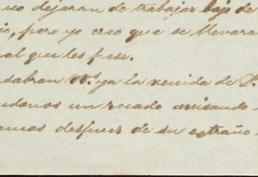 no dejaran de trabajar bajo de
pero yo creo que se llevara
mal que les pese.
sabran Vds. ya la venida de D.
danos un recado avisando
amos despues de su extraño